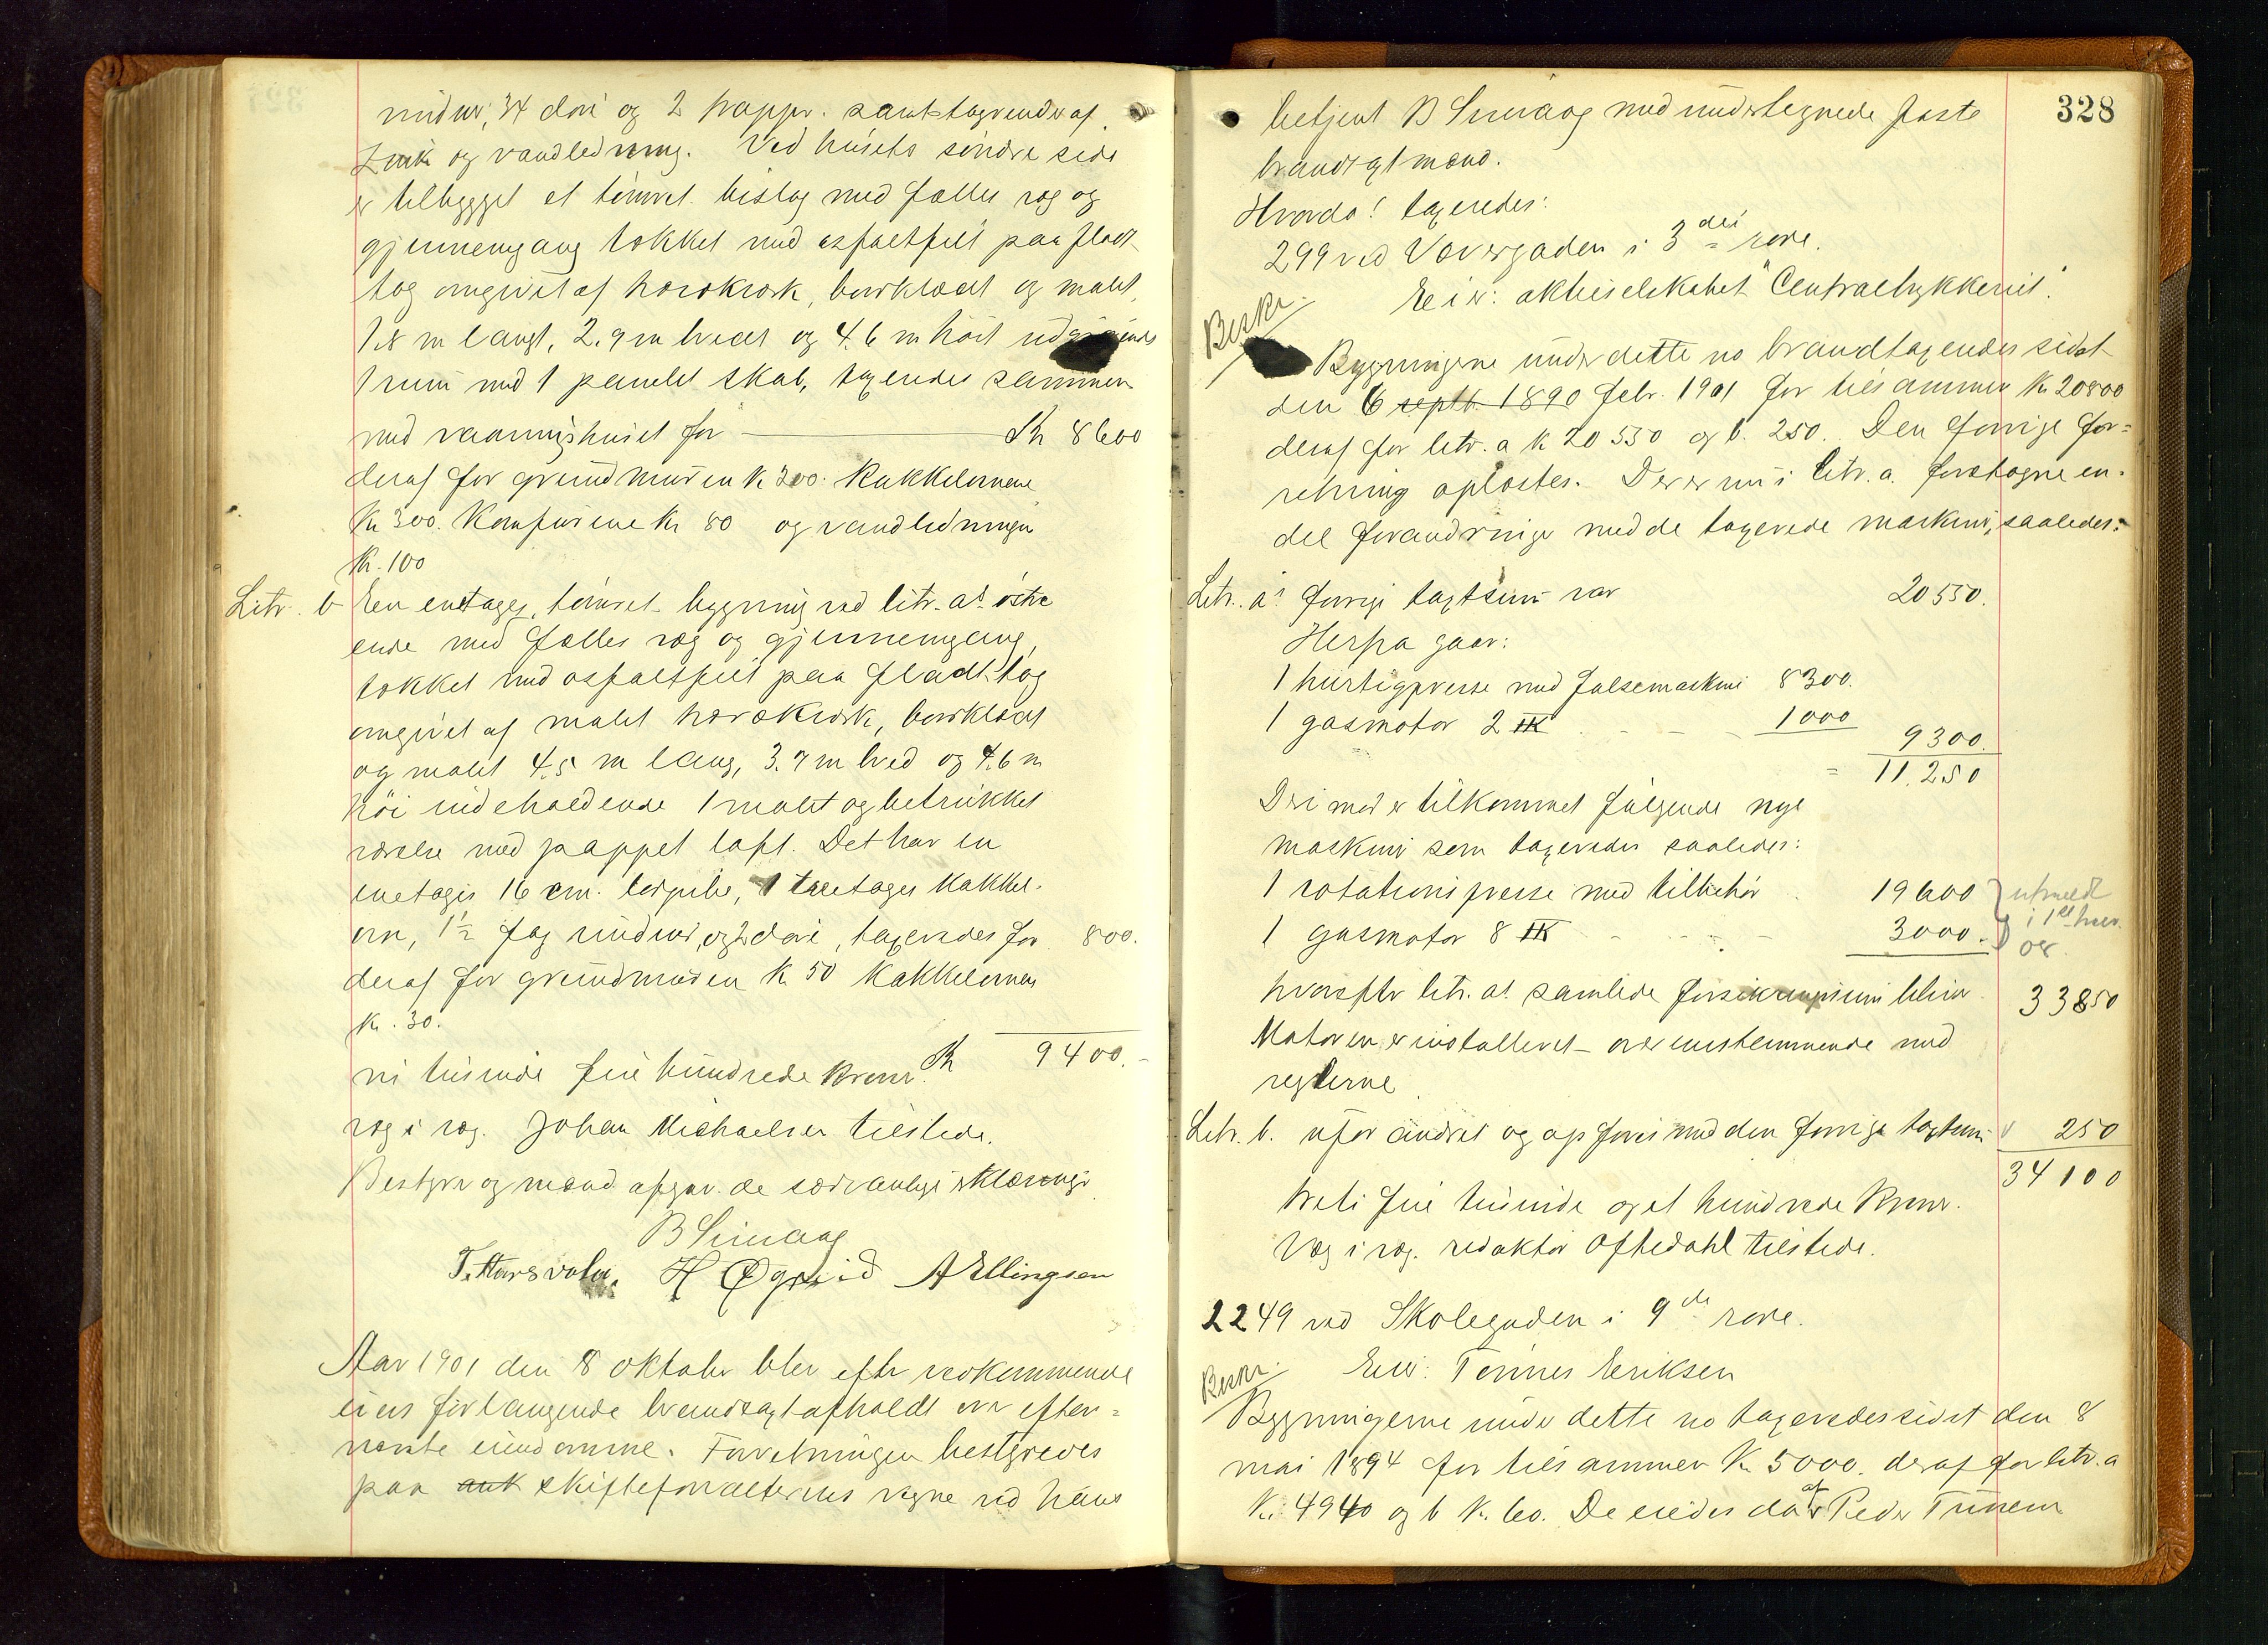 vinduer, 34 döre og 2 trapper. samt tagrender af
Zink og vandledning. Ved husets söndre side
er tilbygget et tömret bislag med fælles væg og
gjennemgang tækket med asfaltfilt paa fladt
tag omgivet af brækværk, bordklædt og malet,
langt, 2.9 m bredt og 4.6 m höit
1 rum med 1 panelet skab, taxeredes sammen
med vaaningshuset for Kr 8600
deraf for grundmuren K 300. Kakkelovnene
Kr 300. Komfurene Kr 80 og vandledningen
Kr. 100
Litr. b En enetages, tömret bygning ved litr. a's östre
ende med fælles væg og gjennemgang,
tækket med asfaltfilt paa fladt tag
omgivet af malet brækværk, bordklædt
og malet 4.5 m lang, 3.7 m bred og 4.6 m
höi indeholdende 1 malt og betrukket
værelse med pappet loft. Det har en
enetages 16 cm. lerpibe, 1 toetages kakkel-
ovn, 1½ fag vinduer, og 2 döre, taxeredes for 800.
deraf for grundmuren K 50 Kakkelovnen
Kr. 30.
Kr 9400.-
ni tusinde fire hundrede kroner.
væg i væg. Johan Michaelsen tilstede.
Bestyrer og mænd afgav de sædvanlige erklæringer
B Simaag
T. Harsvola. H Øgreid A Ellingsen
Aar 1901 den 8 oktober blev efter vedkommende
eieres forlangende brandtaxt afholdt over efter-
nævnte eiendomme. Forretningen bestyredes
paa ank skifteforvalterens vegne ved hans
328
betjent B Simaag med undertegnede faste
brandtaxtmænd.
Hvorda! taxeredes:
299 ved Vaversgaden i 3die rode.
Eier: aktieselskabet "Centraltrykkeriet".
Beskr.
Bygningerne under dette no brandtaxeredes sidst
den 6 septb. 1890 febr. 1901 for tilsammen Kr 20800
deraf for litr. a K 20550 og b. 250. Den forrige for-
retning oplæstes. Der er nu i litr. a. foretagne en-
del forandringer med de taxerede maskiner, saaledes:
Litr. a's forrige taxtsum var 20550.
Herfra gaar:
1 hurtigpresse med falsemaskine 8300.
1 gasmotor 2 HK 1000
9300.
= 11.250
Derimod er tilkommet fölgende nye
maskiner som taxeredes saaledes:
1 rotationspresse med tilbehör 19600
1 gasmotor 8 HK 3000.
utmeldt
i 1ste
08.
hvorefter litr. a's samlede forsikringssum bliver 33850
Motoren er installeret overensstemmende med
reglerne
Litr. b. uforandret og opföres med den forrige taxtsum 250
34100
treti fire tusinde og et hundrede kroner.
Væg i væg. redaktör Oftedahl tilstede.
2249 ved Skolegaden i 9de rode.
Eier: Tönnes Eriksen
Beskr.
Bygningerne under dette no taxeredes sidst den 8
mai 1894 for tilsammen Kr 5000. deraf for litr. a
Kr. 4940 og b K. 60. De eiedes da af Peder Tunem